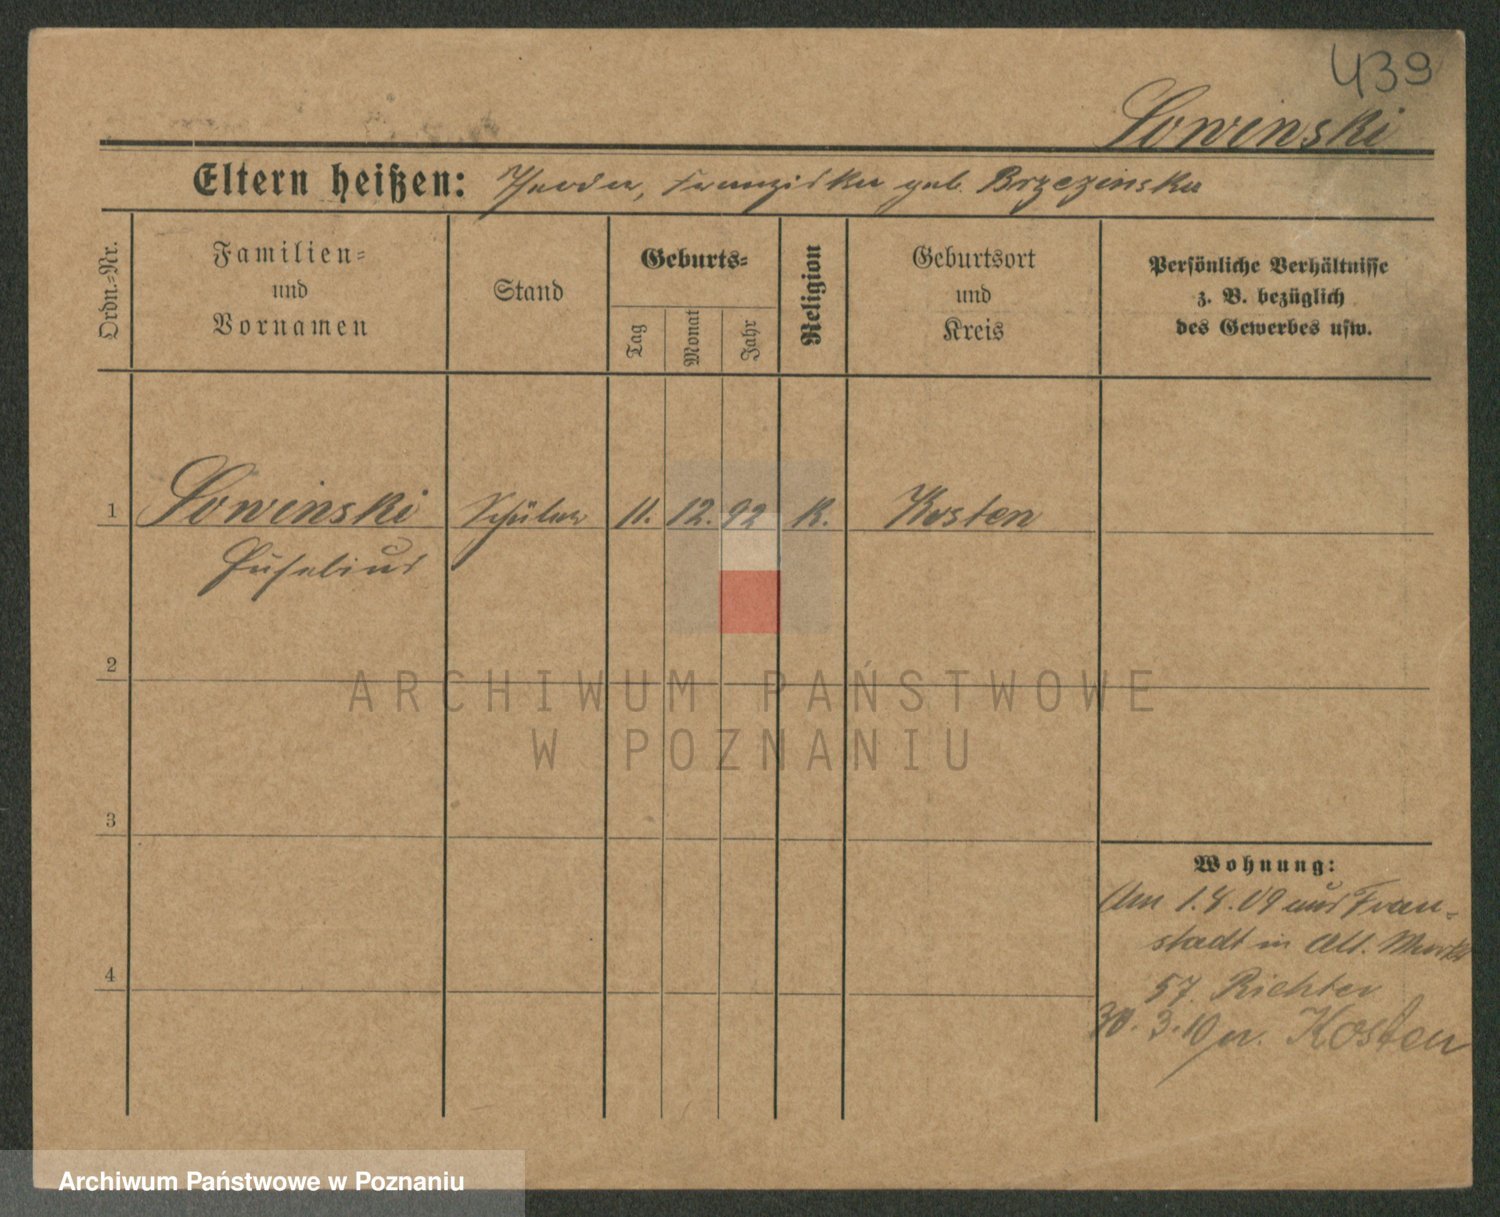 439
Lowinski
Eltern heißen: Theodor, Franziska geb. Brzezinska
Ordn.-Nr.
Familien-
und
Vornamen
Stand
Geburts-
Tag
Monat
Jahr
Religion
Geburtsort
und
Kreis
Persönliche Verhältnisse
z. B. bezüglich
des Gewerbes usw.
1 Lowinski Schüler 11. 12. 92 K. Kosten
2
3
4
Wohnung:
Am 1.4.09 aus Frau-
stadt in Alt. Markt
57 Richter
30.3.10 n. Kosten
ARCHIWUM PAŃSTWOWE
W POZNANIU
Archiwum Państwowe w Poznaniu